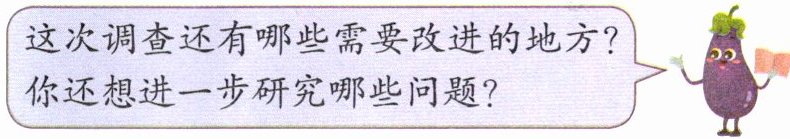 这次调查还有哪些需要改进的地方？
你还想进一步研究哪些问题？